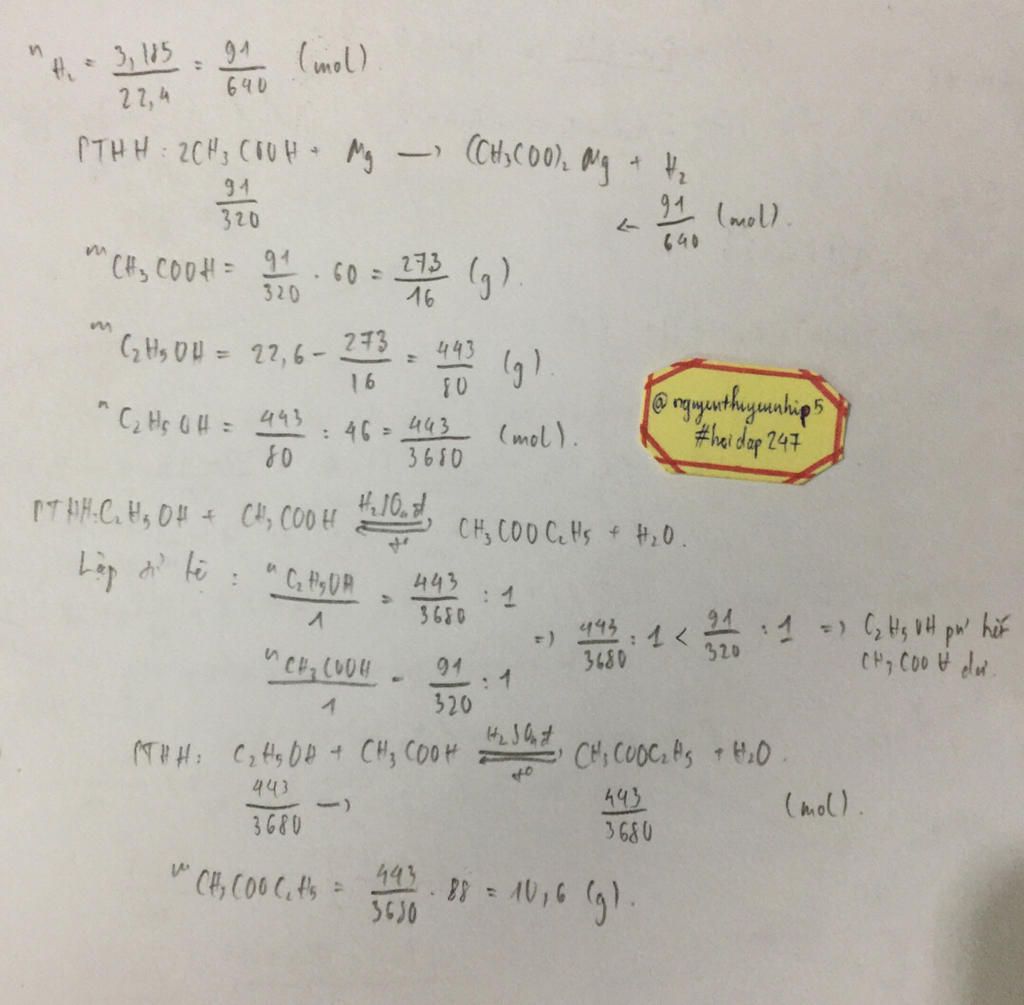 n H₂ = 3,185/22,4 = 91/640 (mol)
PTHH: 2CH₃COOH + Mg → (CH₃COO)₂Mg + H₂
91/320 ← 91/640 (mol).
m CH₃COOH = 91/320 . 60 = 273/16 (g).
m C₂H₅OH = 22,6 - 273/16 = 443/80 (g).
n C₂H₅OH = 443/80 : 46 = 443/3680 (mol).
@nguyenthiyennhip5
#hoidap247
PTHH: C₂H₅OH + CH₃COOH ⇌ (H₂SO₄đ, t°) CH₃COOC₂H₅ + H₂O.
Lập tỉ lệ : n C₂H₅OH/1 = 443/3680 : 1
n CH₃COOH/1 = 91/320 : 1
=> 443/3680 : 1 < 91/320 : 1 => C₂H₅OH pư hết
CH₃COOH dư.
PTHH: C₂H₅OH + CH₃COOH ⇌ (H₂SO₄đ, t°) CH₃COOC₂H₅ + H₂O.
443/3680 → 443/3680 (mol).
m CH₃COOC₂H₅ = 443/3680 . 88 = 10,6 (g).